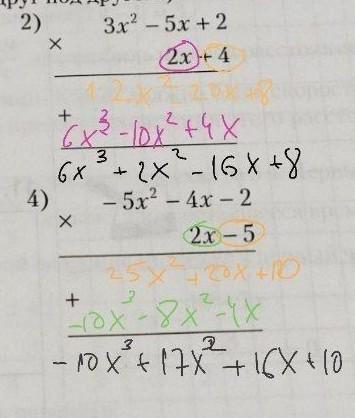 2) 3x² − 5x + 2
×
2x + 4
12x² - 20x + 8
+
6x³ - 10x² + 4x
6x³ + 2x² - 16x + 8
4) − 5x² − 4x − 2
×
2x − 5
25x² + 20x + 10
+
-10x³ - 8x² - 4x
- 10x³ + 17x² + 16x + 10